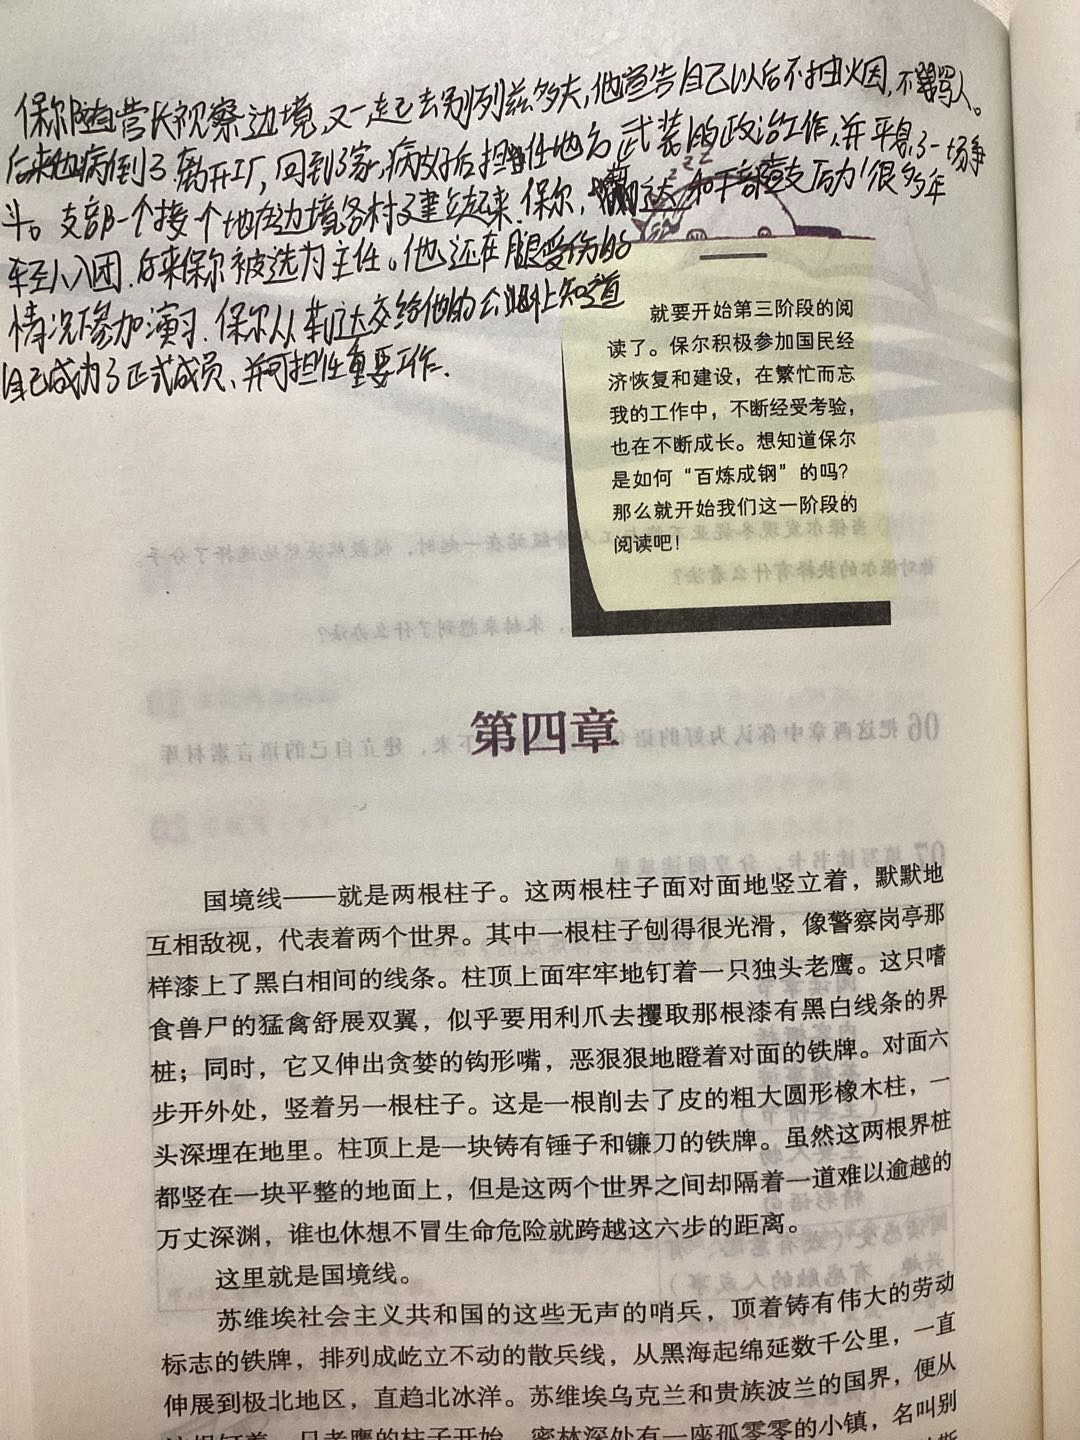 保尔随营长视察边境,又一起去别列兹多夫,他宣告自己以后不抽烟,不骂人。
后来他病倒了离开工厂,回到了家,病好后担任地方武装的政治工作,并平息了一场争
斗。支部一个接个地在边境各村子建立起来.保尔,莉达和干部鼓励很多年
轻人入团.后来保尔被选为主任。他还在腿受伤的
情况下参加演习.保尔从莉达交给他的公出上知道
自己成为了正式成员、并可担任重要工作.
就要开始第三阶段的阅
读了。保尔积极参加国民经
济恢复和建设，在繁忙而忘
我的工作中，不断经受考验，
也在不断成长。想知道保尔
是如何“百炼成钢”的吗？
那么就开始我们这一阶段的
阅读吧！
第四章
国境线——就是两根柱子。这两根柱子面对面地竖立着，默默地
互相敌视，代表着两个世界。其中一根柱子刨得很光滑，像警察岗亭那
样漆上了黑白相间的线条。柱顶上面牢牢地钉着一只独头老鹰。这只嗜
食兽尸的猛禽舒展双翼，似乎要用利爪去攫取那根漆有黑白线条的界
桩；同时，它又伸出贪婪的钩形嘴，恶狠狠地瞪着对面的铁牌。对面六
步开外处，竖着另一根柱子。这是一根削去了皮的粗大圆形橡木柱，一
头深埋在地里。柱顶上是一块铸有锤子和镰刀的铁牌。虽然这两根界桩
都竖在一块平整的地面上，但是这两个世界之间却隔着一道难以逾越的
万丈深渊，谁也休想不冒生命危险就跨越这六步的距离。
这里就是国境线。
苏维埃社会主义共和国的这些无声的哨兵，顶着铸有伟大的劳动
标志的铁牌，排列成屹立不动的散兵线，从黑海起绵延数千公里，一直
伸展到极北地区，直趋北冰洋。苏维埃乌克兰和贵族波兰的国界，便从
一只老鹰的柱子开始。密林深处有一座孤零零的小镇，名叫别